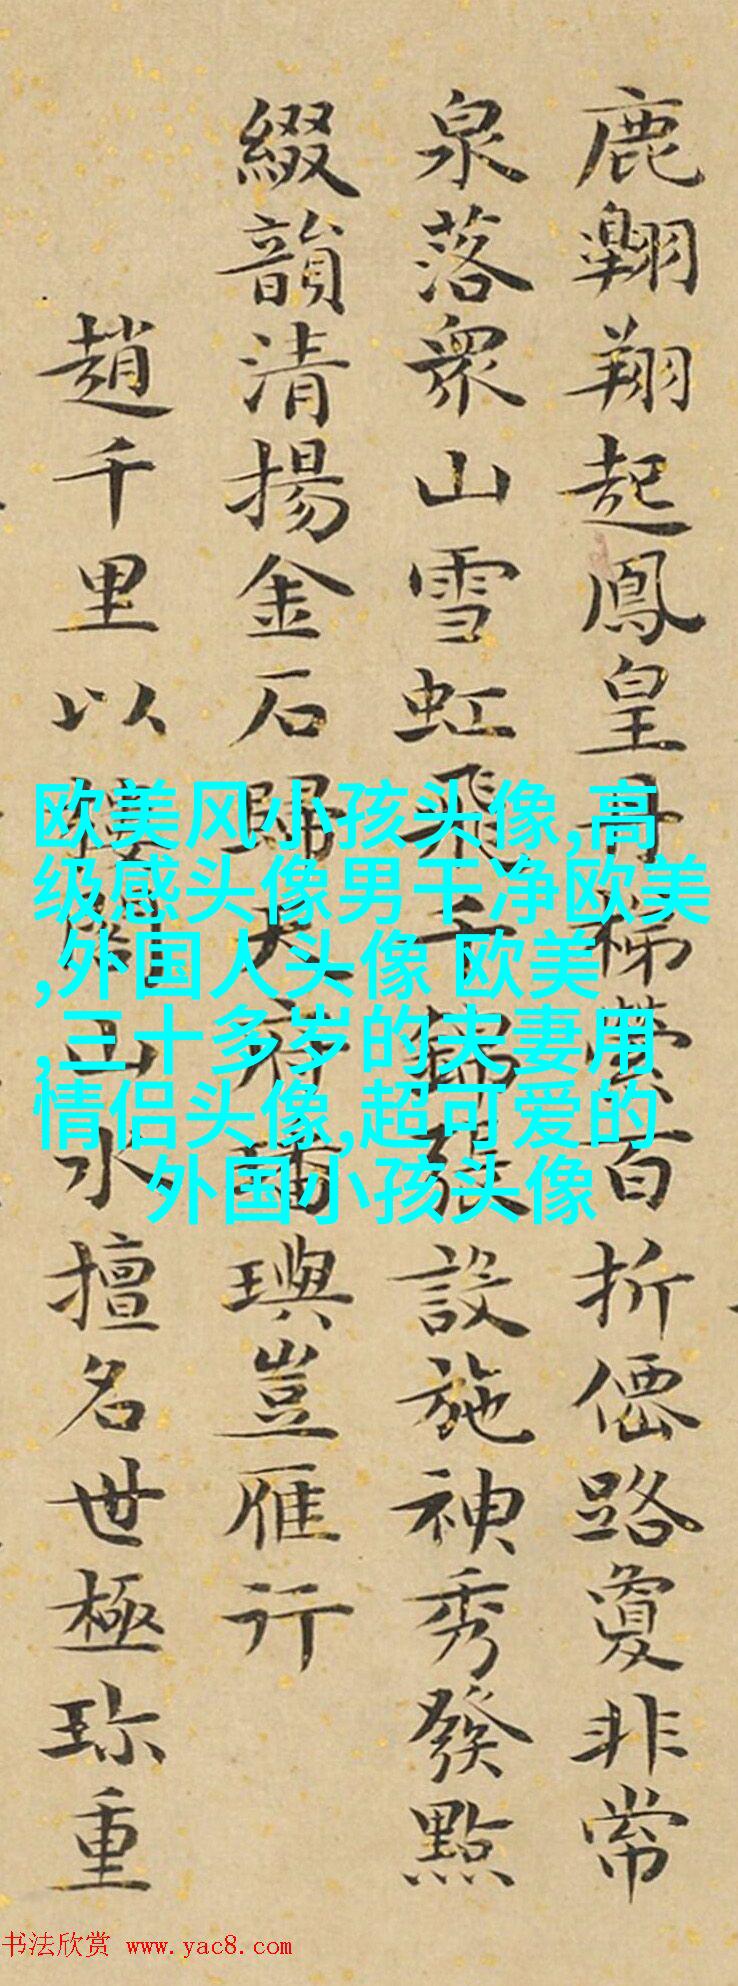 鹿翺翔起鳳皇丹梯縈百折僊路敻非常
泉落衆山雪虹飛千錦張設施神秀發點
綴韻清揚金石歸天府璠璵豈雁行
趙千里以樓閣山水擅名世極珍重
欧美风小孩头像,高
级感头像男干净欧美
,外国人头像 欧美
,三十多岁的夫妻用
情侣头像,超可爱的
外国小孩头像
书法欣赏 www.yac8.com